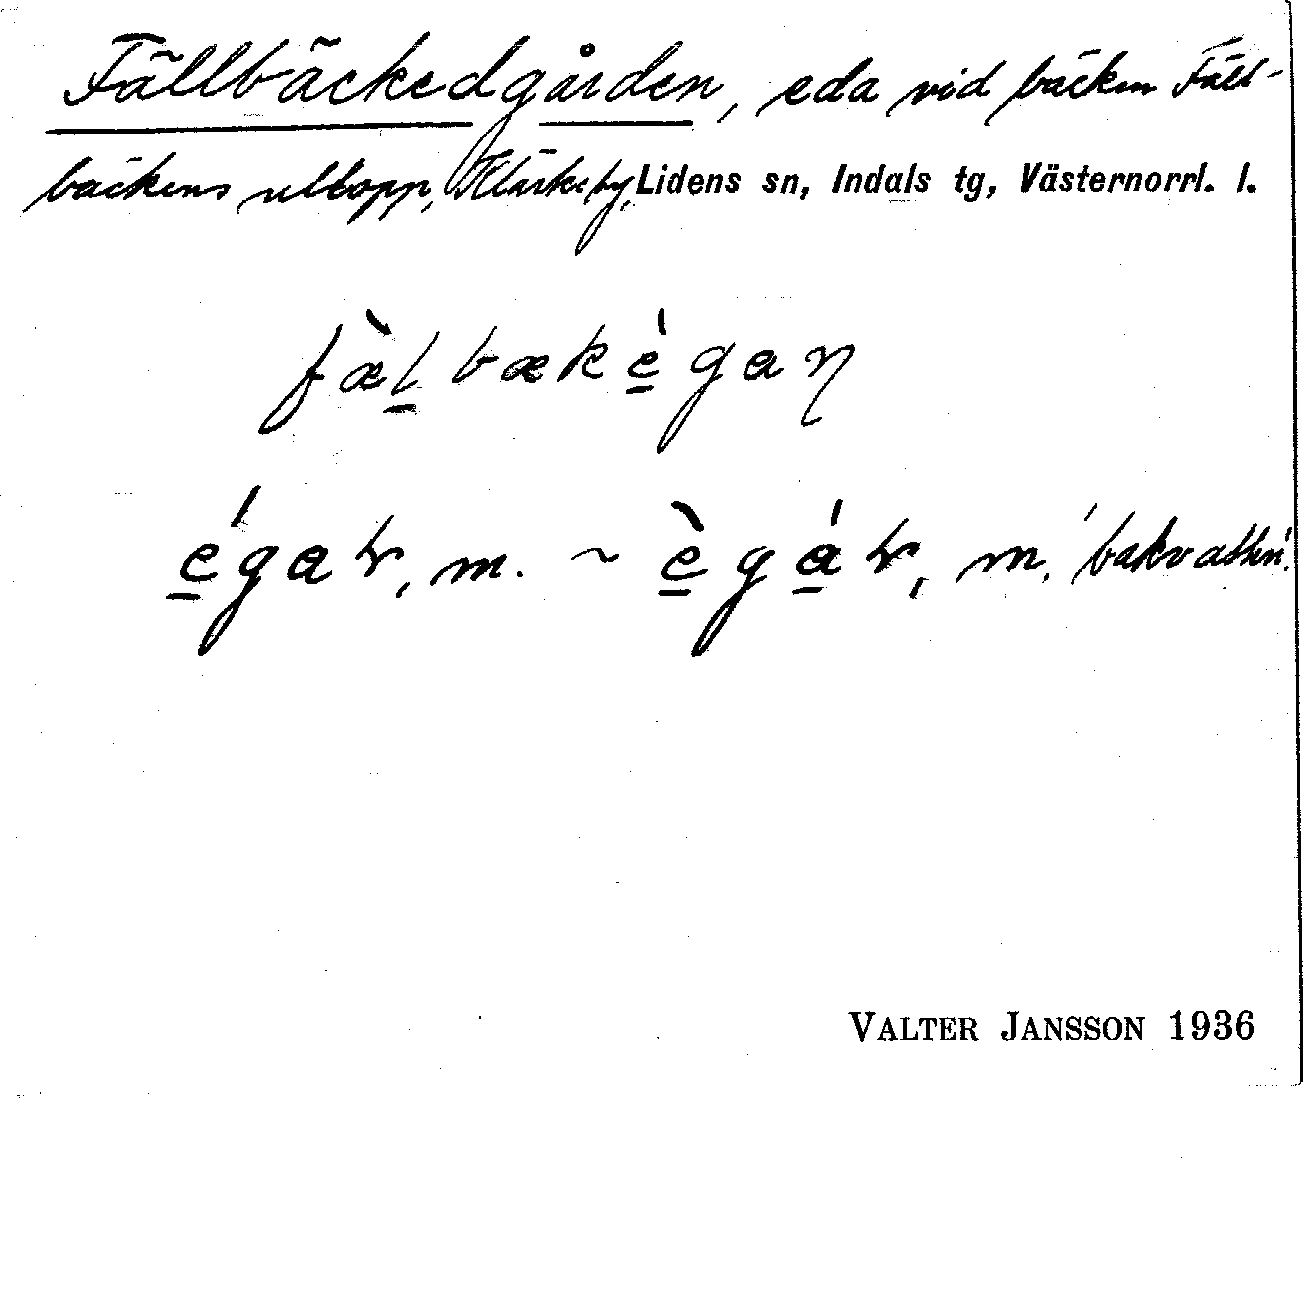 Fällbäckedgården, eda vid bäcken Fäll-
bäckens utlopp, Kläcke by, Lidens sn, Indals tg, Västernorrl. l.
fæ̀l̠bækè̠gaɳ
é̠gaɽ, m. ~ è̠gá̠ɽ, m. 'bakvatten'.
VALTER JANSSON 1936